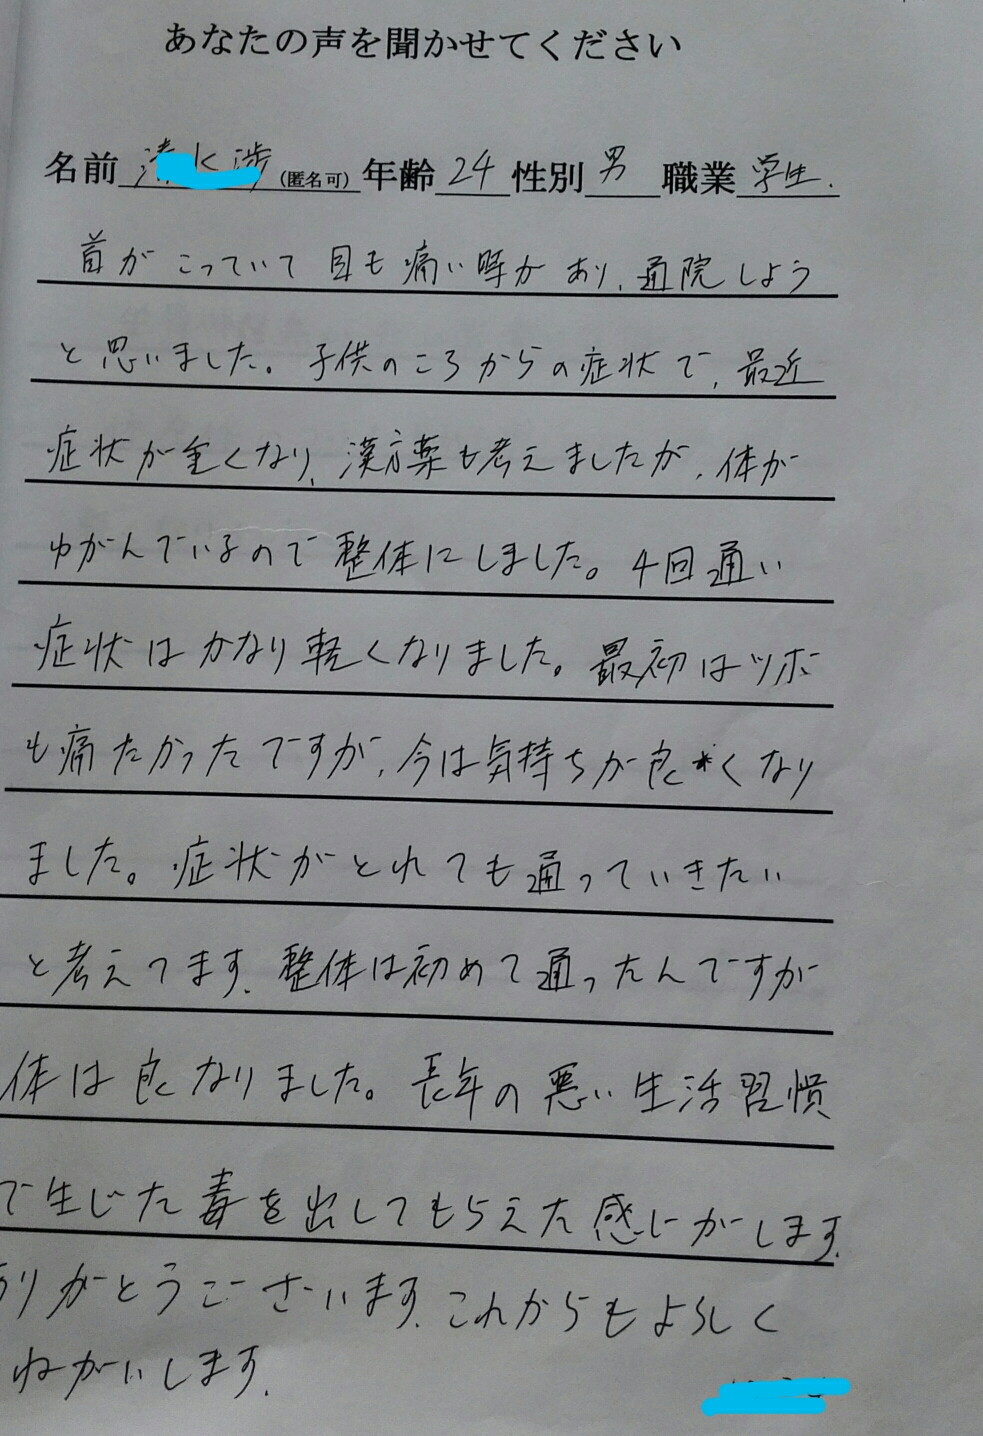 あなたの声を聞かせてください
名前 渉 (匿名可) 年齢 24 性別 男 職業 学生.
首がこっていて目も痛い時があり、通院しよう
と思いました。子供のころからの症状で、最近
症状が重くなり、漢方薬も考えましたが、体が
ゆがんでいるので整体にしました。4回通い
症状はかなり軽くなりました。最初はツボ
も痛たかったですが、今は気持ちが良くなり
ました。症状がとれても通っていきたい
と考えてます。整体は初めて通ったんですが
体は良なりました。長年の悪い生活習慣
で生じた毒を出してもらえた感じがします。
ありがとうございます。これからもよろしく
ねがいします。